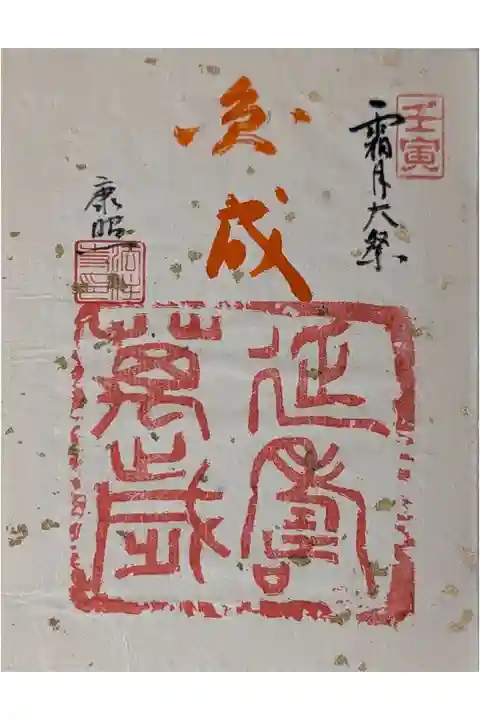 壬寅
霜月大祭
成
康昭
延壽
萬歳